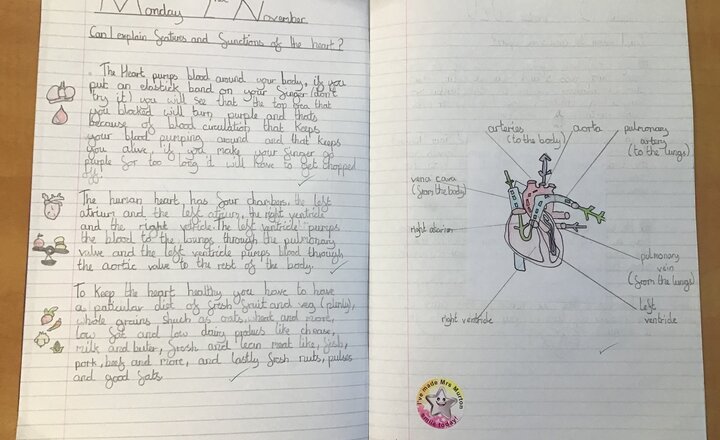 Monday November
Can I explain features and functions of the heart?
The Heart pumps blood around your body, if you
put an elastick band on your finger (don't
try it) you will see that the top area that
you blocked will turn purple and thats
because of blood circulation that keeps
your blood pumping around and that keeps
you alive if you make your finger go
purple for too long it will have to get chopped
off.
The human heart has four chambers, the left
atrium and the left atrium, the right ventricle
and the right ventricle. The left ventricle pumps
the blood to the loungs through the pulmonary
valve and the left ventricle pumps blood through
the aortic valve to the rest of the body.
To keep the heart healthy you have to have
a paticular diet of fresh fruit and veg (plenty),
whole grains shuch as oats, wheat and more,
low fat and low dairy produs like chease,
milk and buter, frosh and lean meat like, fish,
pork, beef and more, and lastly frosh nuts, pulses
and good fats.
arteries
(to the body)
aorta
pulmonary
artery
(to the lungs)
vena cava
(from the body)
right atarium
pulmonary
vein
(from the lungs)
right ventricle
left
ventricle
I've made Mrs Murton
smile today!